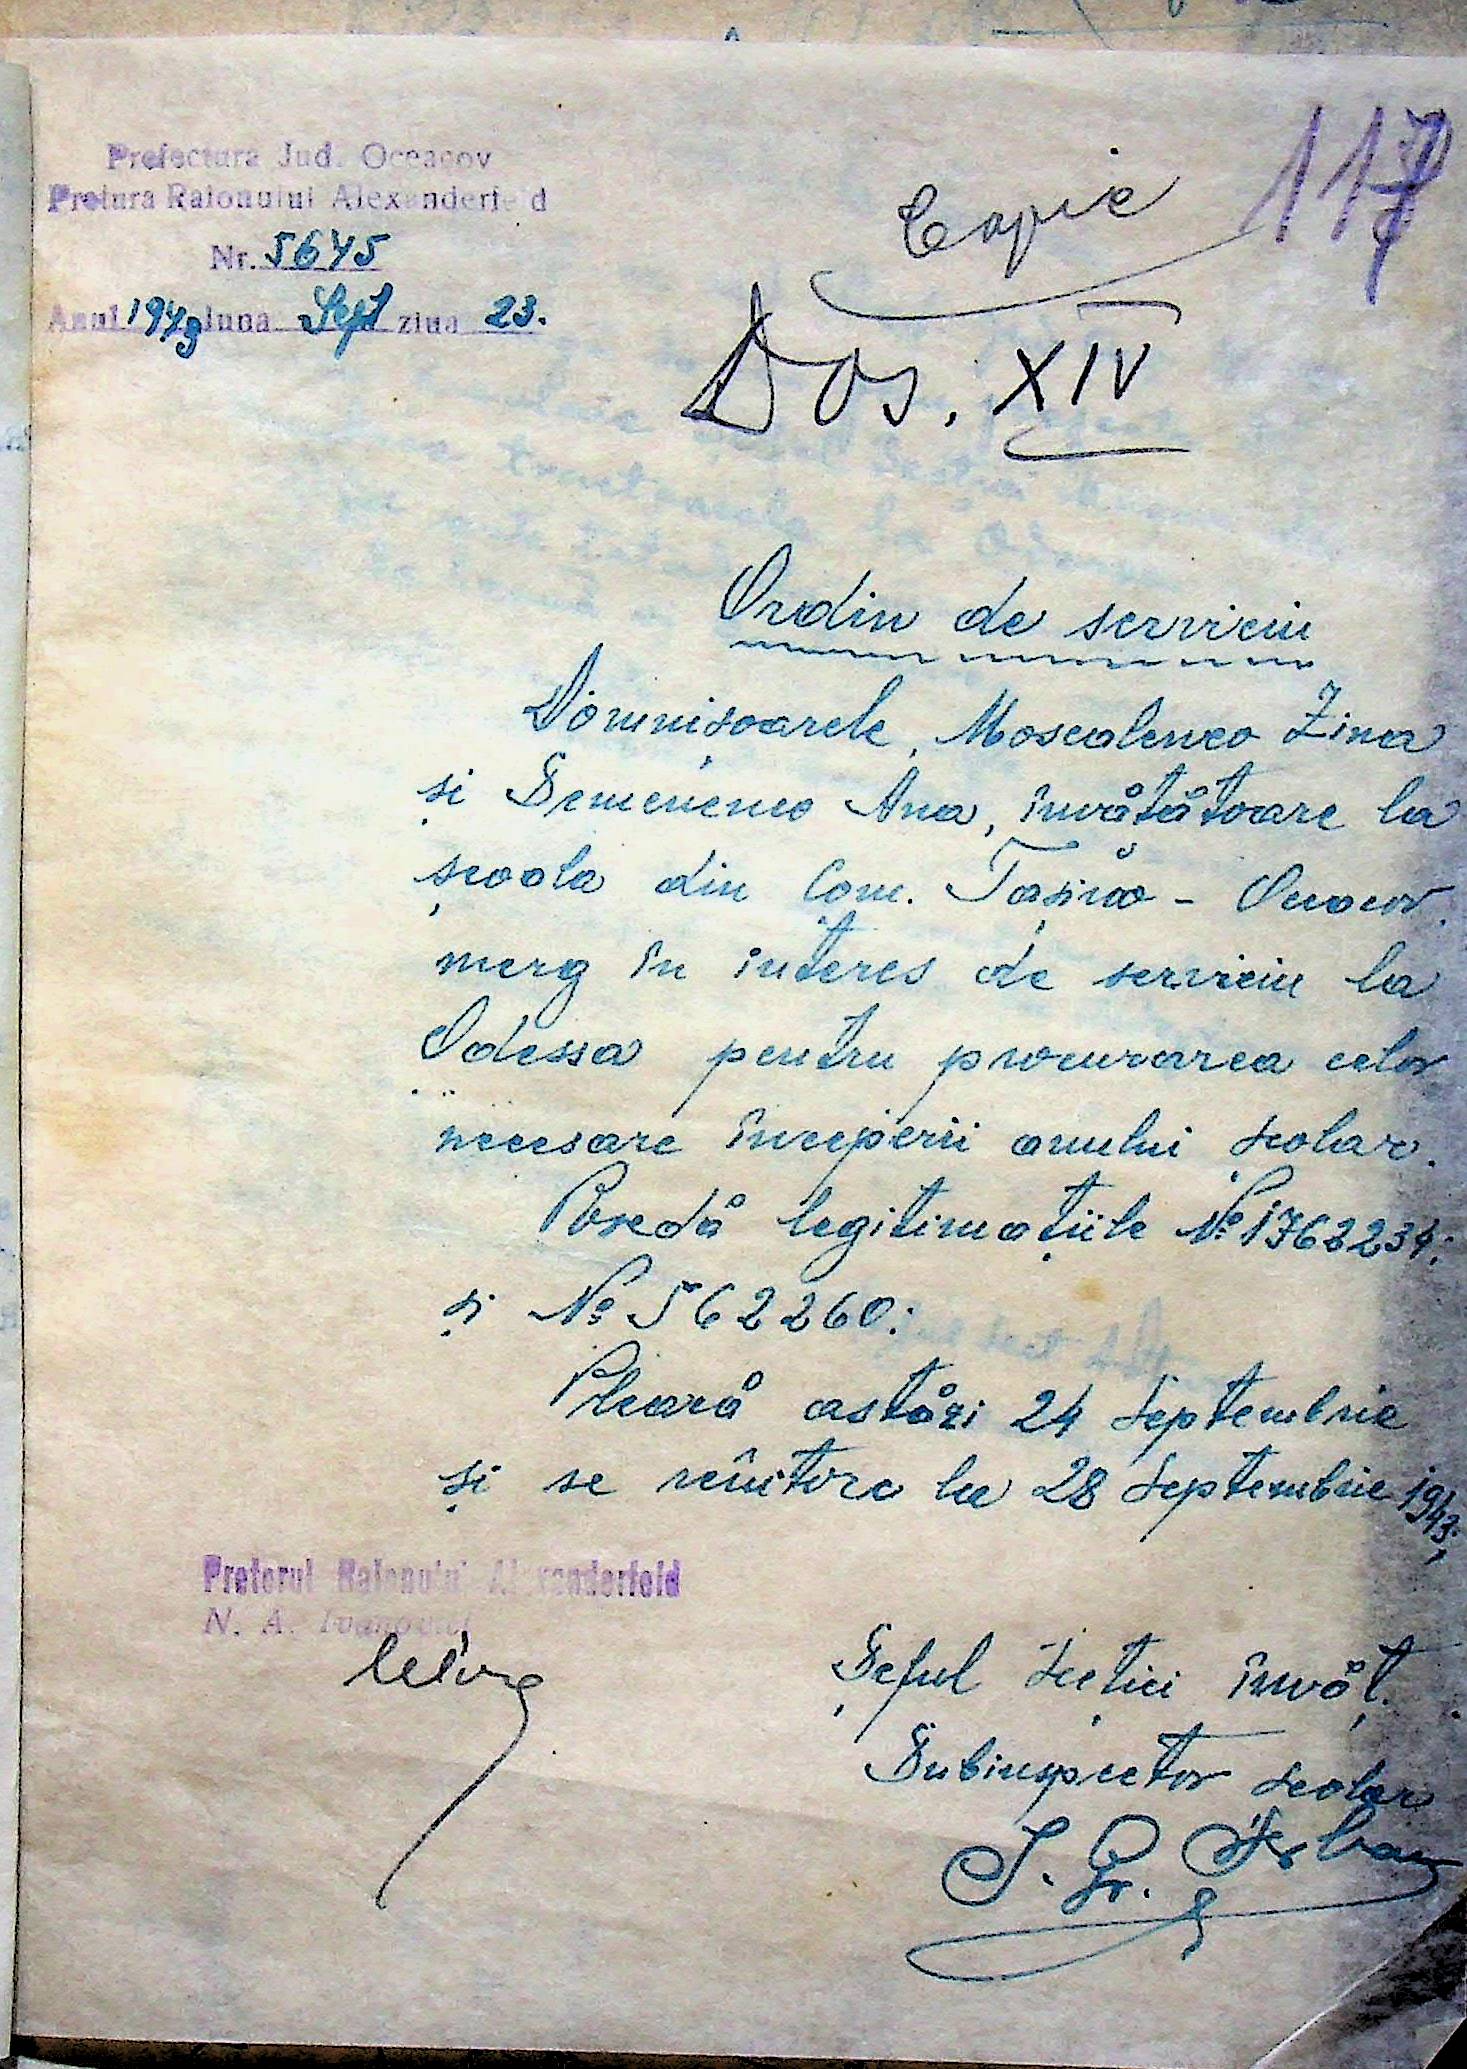 Prefectura Jud. Oceacov
Pretura Raionului Alexanderfeld
Nr. 5645
Anul 1943 luna Sept ziua 23.
117
Copie
Dos. XIV
Ordin de serviciu
Domnișoarele, Moscalenco Zina
și Semenenco Ana, învățătoare la
școala din Com. Tașino - Oceacov.
merg în interes de serviciu la
Odessa pentru procurarea celor
necesare începerii anului școlar.
Posedă legitimațiile № 1762234;
și № 562260;
Pleacă astăzi 24 Septembrie
și se reîntorc la 28 Septembrie 1943;
Pretorul Raionului Alexanderfeld
N. A. Ivanovici
Șeful Secției învăț.
Subinspector școlar